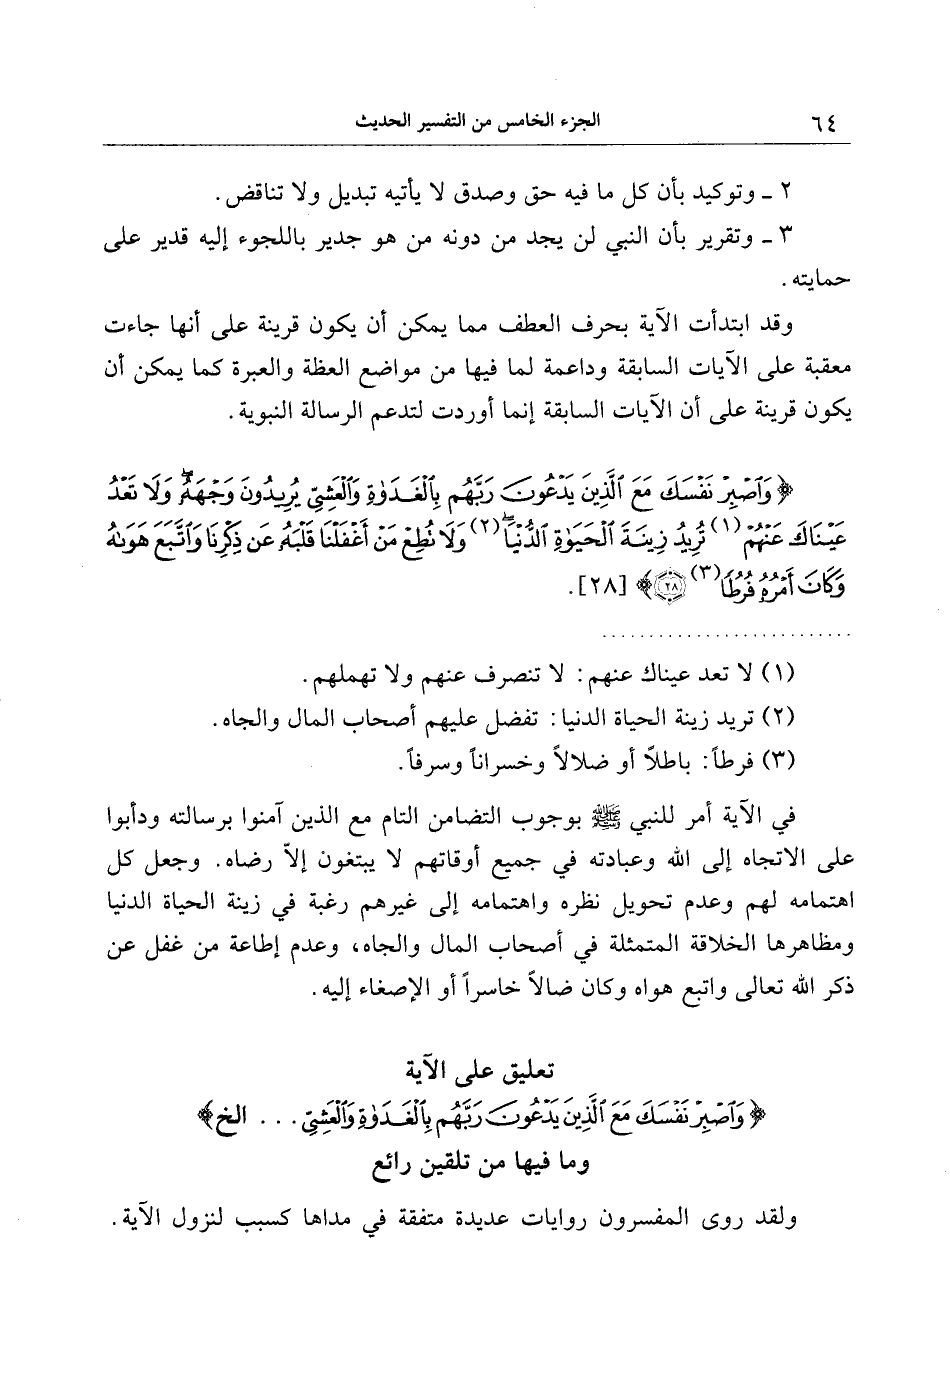 ٦٤
الجزء الخامس من التفسير الحديث
٢ ـ وتوكيد بأن كل ما فيه حق وصدق لا يأتيه تبديل ولا تناقض.
٣ ـ وتقرير بأن النبي لن يجد من دونه من هو جدير باللجوء إليه قدير على
حمايته.
وقد ابتدأت الآية بحرف العطف مما يمكن أن يكون قرينة على أنها جاءت
معقبة على الآيات السابقة وداعمة لما فيها من مواضع العظة والعبرة كما يمكن أن
يكون قرينة على أن الآيات السابقة إنما أوردت لتدعم الرسالة النبوية.
﴿وَٱصۡبِرۡ نَفۡسَكَ مَعَ ٱلَّذِينَ يَدۡعُونَ رَبَّهُم بِٱلۡغَدَوٰةِ وَٱلۡعَشِيِّ يُرِيدُونَ وَجۡهَهُۥۖ وَلَا تَعۡدُ
عَيۡنَاكَ عَنۡهُمۡ (١) تُرِيدُ زِينَةَ ٱلۡحَيَوٰةِ ٱلدُّنۡيَاۖ (٢) وَلَا تُطِعۡ مَنۡ أَغۡفَلۡنَا قَلۡبَهُۥ عَن ذِكۡرِنَا وَٱتَّبَعَ هَوَىٰهُ
وَكَانَ أَمۡرُهُۥ فُرُطٗا (٣) ٢٨﴾ [٢٨].
(١) لا تعد عيناك عنهم: لا تنصرف عنهم ولا تهملهم.
(٢) تريد زينة الحياة الدنيا: تفضل عليهم أصحاب المال والجاه.
(٣) فرطاً: باطلاً أو ضلالاً وخسراناً وسرفاً.
في الآية أمر للنبي ﷺ بوجوب التضامن التام مع الذين آمنوا برسالته ودأبوا
على الاتجاه إلى الله وعبادته في جميع أوقاتهم لا يبتغون إلاّ رضاه. وجعل كل
اهتمامه لهم وعدم تحويل نظره واهتمامه إلى غيرهم رغبة في زينة الحياة الدنيا
ومظاهرها الخلاقة المتمثلة في أصحاب المال والجاه، وعدم إطاعة من غفل عن
ذكر الله تعالى واتبع هواه وكان ضالاً خاسراً أو الإصغاء إليه.
تعليق على الآية
﴿وَٱصۡبِرۡ نَفۡسَكَ مَعَ ٱلَّذِينَ يَدۡعُونَ رَبَّهُم بِٱلۡغَدَوٰةِ وَٱلۡعَشِيِّ... الخ﴾
وما فيها من تلقين رائع
ولقد روى المفسرون روايات عديدة متفقة في مداها كسبب لنزول الآية.